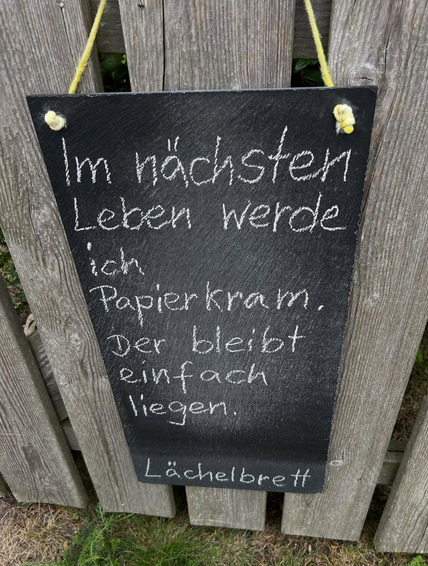 Im nächsten
Leben werde
ich
Papierkram.
Der bleibt
einfach
liegen.
Lächelbrett